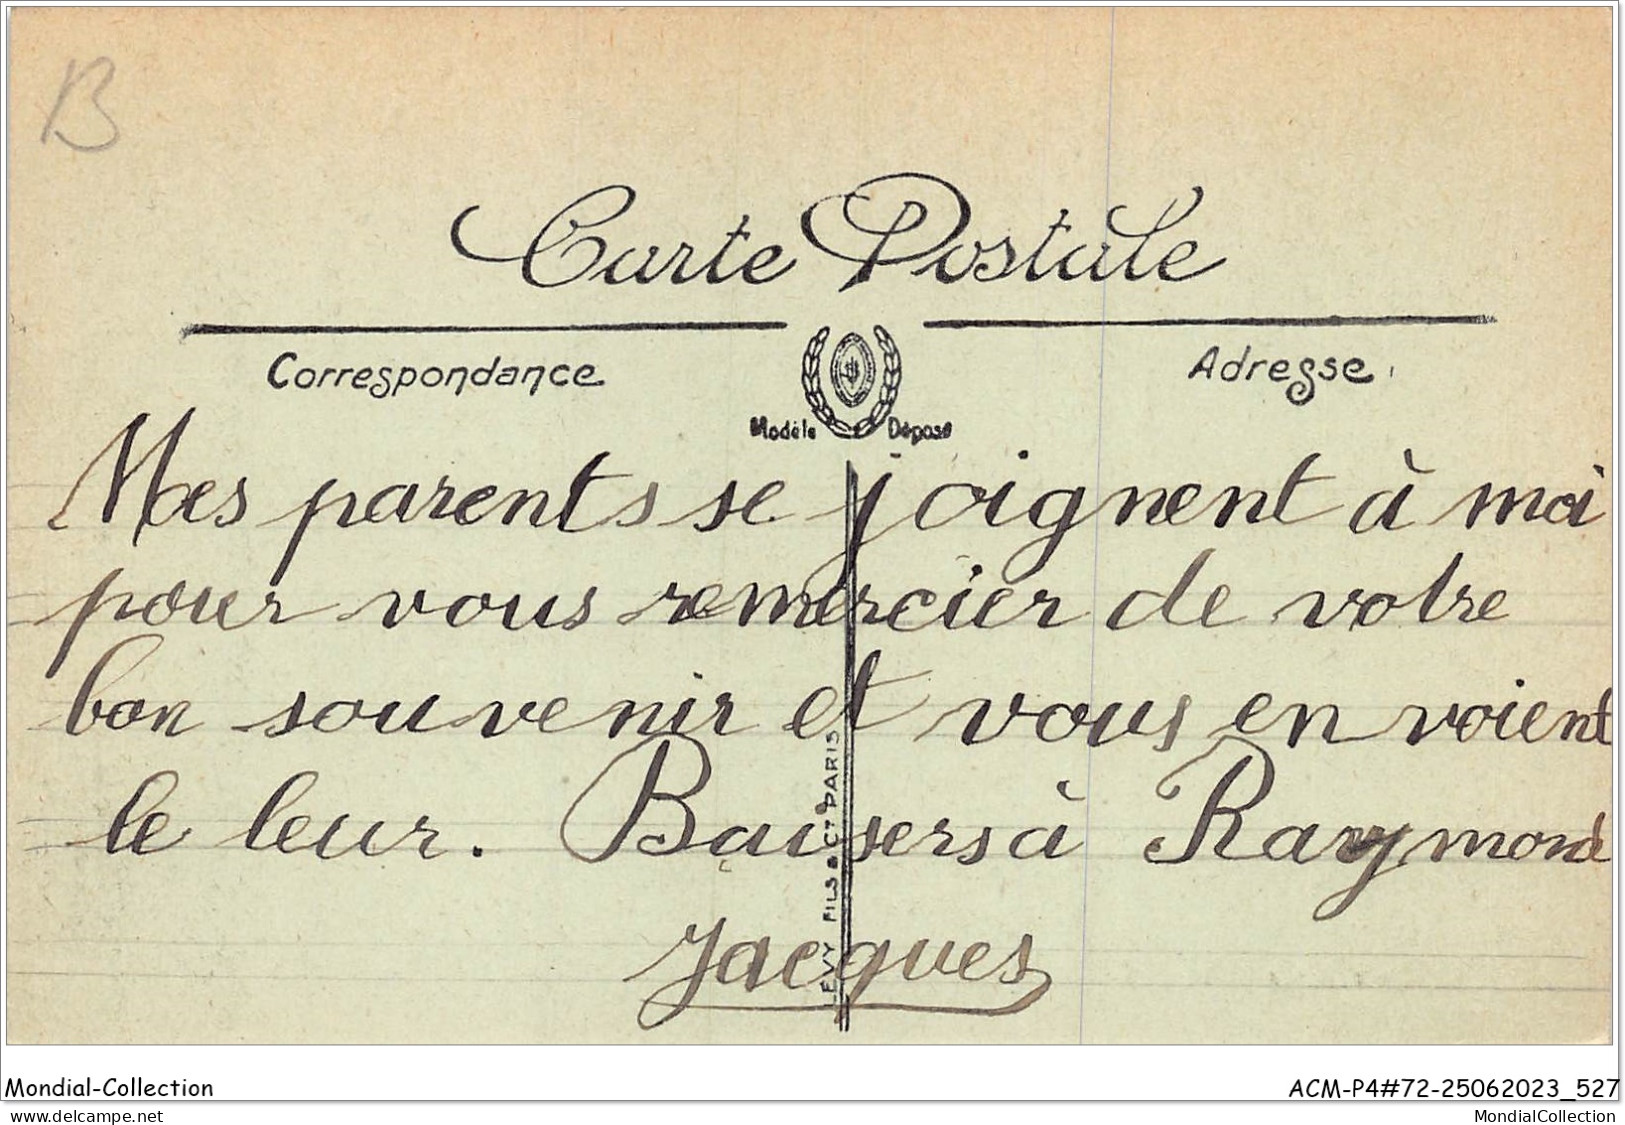 B
Carte Postale
Correspondance
Adresse
Modèle Déposé
Mes parents se joignent à moi
pour vous remercier de votre
bon souvenir et vous envoient
le leur. Baisers à Raymond
Jacques
LEVY FILS & Cie PARIS
Mondial-Collection
ACM-P4#72-25062023_527
www.delcampe.net
MondialCollection